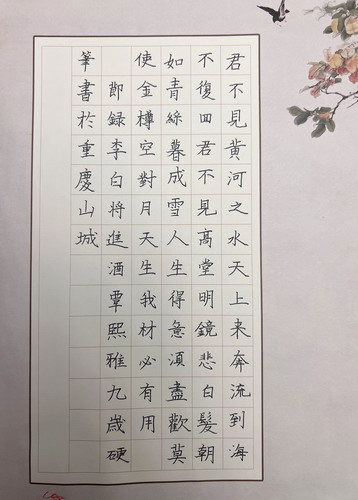 君不見黃河之水天上来奔流到海
不復回君不見高堂明鏡悲白髮朝
如青絲暮成雪人生得意須盡歡莫
使金樽空對月天生我材必有用
即録李白將進酒覃熙雅九歲硬
筆書於重慶山城